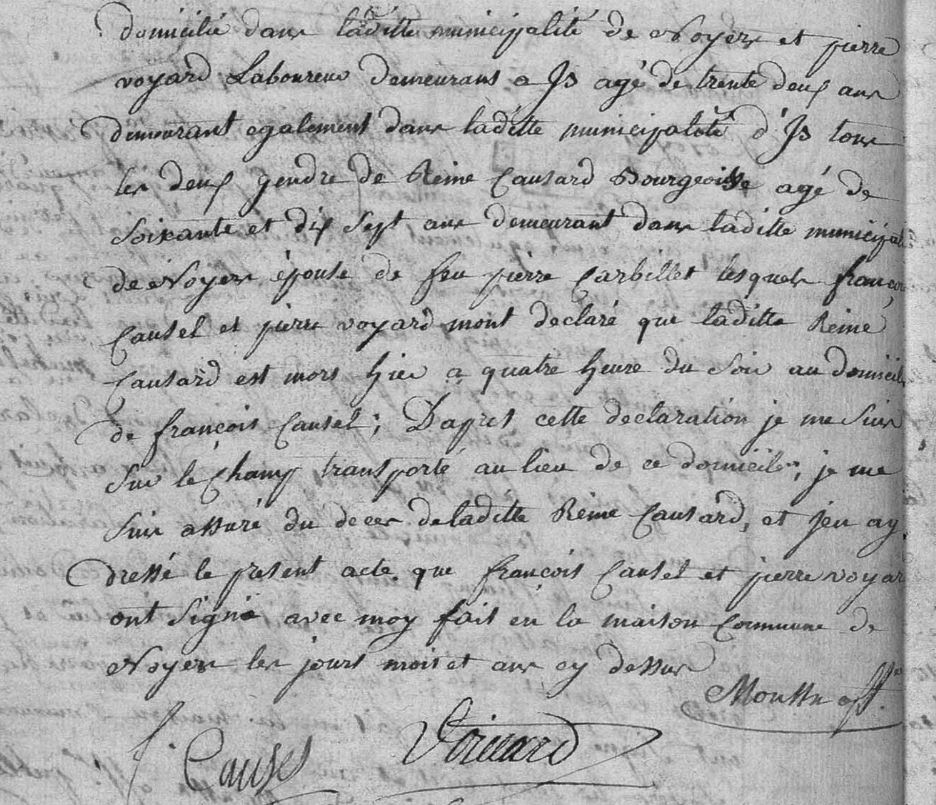 domicilié dans laditte municipalité de Noyers et pierre
voyard Laboureur demeurans a Is agé de trente deux ans
demeurant egalement dans laditte municipalité d'Is tous
les deux gendre de Reine Causard Bourgeoisse agé de
soixante et dix sept ans demeurant dans laditte municipal
de Noyers épouse de feu pierre Carbillet lesquels françoi
Causel et pierre voyard mont declaré que laditte Reine
Causard est mors hier a quatre heure du soir au domicile
de françois Causel; Dapres cette declaration je me suis
sur le champ transporté au lieu de ce domicile, je me
suis assuré du deces deladitte Reine Causard, et jeu ay
dressé le present acte que françois Causel et pierre voyar
ont signé avec moy fait en la maison Commune de
Noyers les jours mois et ans cy dessus
off.
f. Causel Voiuard